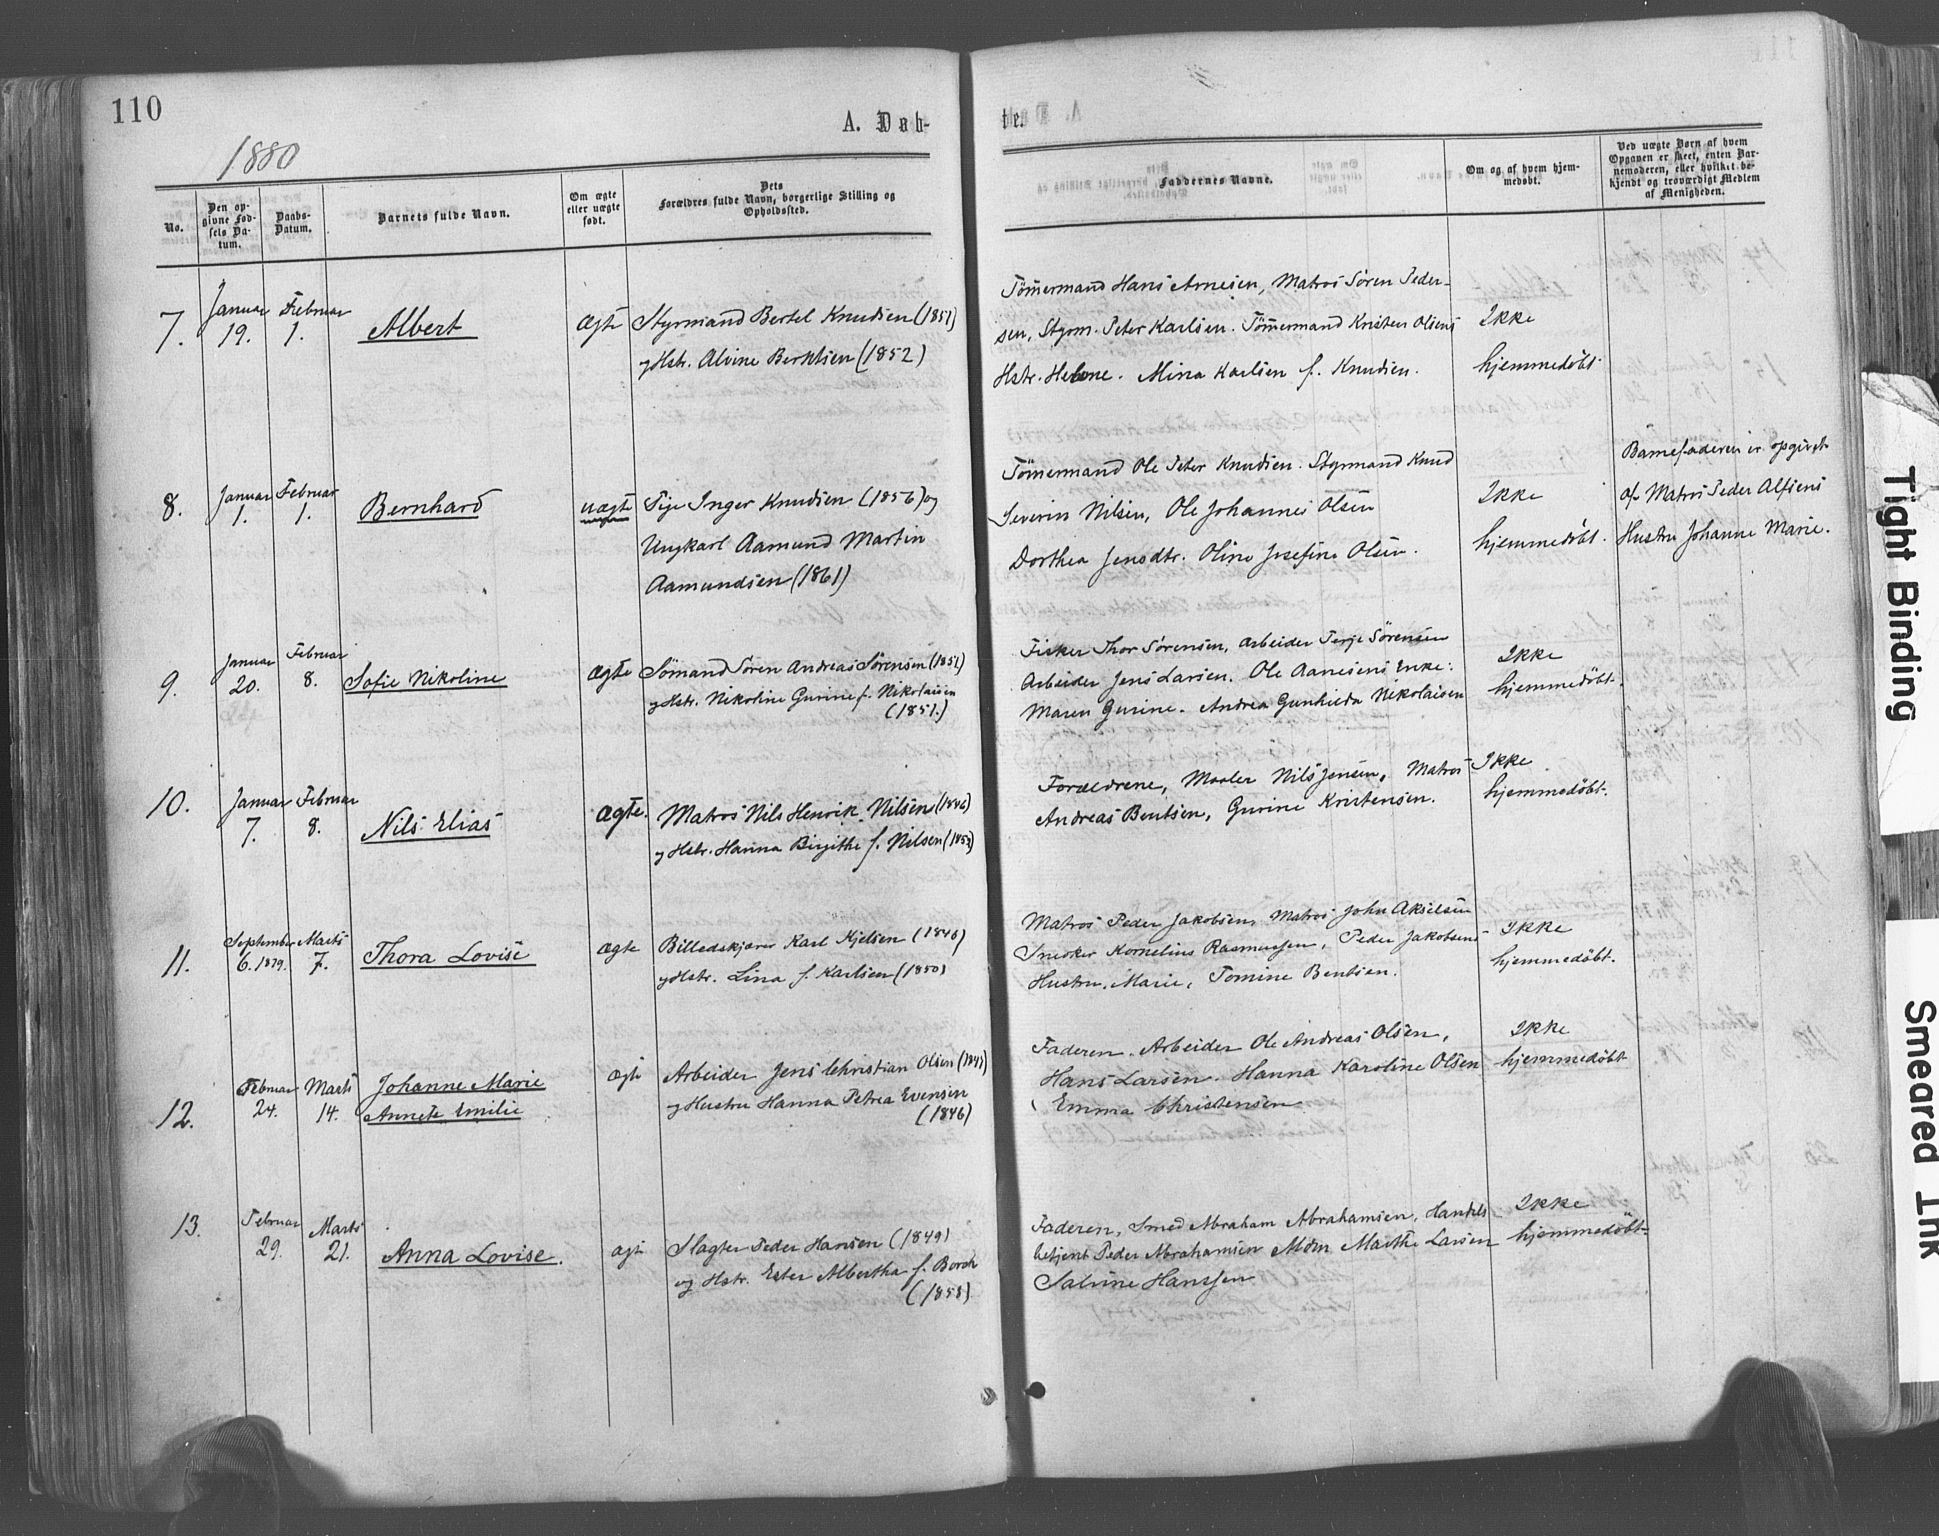 110
A. Døb-
te.
1880
No.
Den op-
givne Fød-
sels Da-
tum.
Daabs-
Datum.
Barnets fulde Navn.
Om ægte
eller uægte
født.
Dets
Forældres fulde Navn, borgerlige Stilling og
Opholdssted.
Faddernes Navne.
Om og af hvem hjem-
medøbt.
Ved uægte Børn af hvem
Opgaven er skeet, enten Bar-
nemoderen, eller hvilket be-
kjendt og troværdigt Medlem
af Menigheden.
7.
Januar
19.
Februar
1.
Albert
Ægte
Styrmand Bertel Knudsen (1851)
og Hstr. Alvine Berthsen (1852)
Tömmermand Hans Arnesen, Matros Sören Peder-
sen, Styrm. Peter Karlsen. Tömmermand Kristen Olsens
Hstr. Helene. Mina Karlsen f. Knudsen.
Ikke
hjemmedöbt.
8.
Januar
1.
Februar
1.
Bernhard
uægte
Pige Inger Knudsen (1856) og
Ungkarl Aamund Martin
Aamundsen (1861)
Tömmermand Ole Peter Knudsen. Styrmand Knud
Severin Nilsen, Ole Johannes Olsen
Dorthea Jensdtr. Oline Josefine Olsen.
Ikke
hjemmedöbt.
Barnefaderen er opgivet
af Matros Peder Alfsens
Hustru Johanne Marie.
9.
Januar
20.
Februar
8.
Sofie Nikoline
Ægte
Sömand Sören Andreas Sörensen (1852)
og Hstr. Nikoline Gurine f. Nikolaisen
(1851.)
Fisker Thor Sörensen, Arbeider Terje Sörensen
Arbeider Jens Larsen. Ole Aanesens Enke:
Maren Gurine. Andrea Gunhilda Nikolaisen
Ikke
hjemmedöbt.
10.
Januar
7.
Februar
8.
Nils Elias
Ægte.
Matros Nils Henrik Nilsen (1846)
og Hstr. Hanna Birgithe f. Nilsen (1853)
Forældrene, Maaler Nils Jensen, Matros
Andreas Bentsen, Gurine Kristensen.
Ikke
hjemmedöbt.
11.
September
6. 1879.
Marts
7.
Thora Lovise
Ægte
Billedskjærer Karl Kjelsen (1846)
og Hstr. Lina f. Karlsen (1850)
Matros Peder Jakobsen, Matros John Akselsen
Snedker Kornelius Rasmussen, Peder Jakobsens
Hustru, Marie, Tomine Bentsen.
Ikke
hjemmedöbt.
12.
Februar
24.
Marts
14.
Johanne Marie
Annete Emilie
Ægte
Arbeider Jens Christian Olsen (1841)
og Hustru Hanna Petrea Evensen
(1846)
Faderen. Arbeider Ole Andreas Olsen,
Hans Larsen. Hanna Karoline Olsen
Emma Christensen
Ikke
hjemmedöbt
13.
Februar
29.
Marts
21.
Anna Lovise.
Ægte
Slagter Peder Hansen (1849)
og Hstr. Ester Albertha f. Borch
(1858)
Faderen, Smed Abraham Abrahamsen, Handels
betjent Peder Abrahamsen Mdm Marthe Larsen
Sabine Hanssen
Ikke
hjemmedöbt.
Tight Binding
Smeared Ink